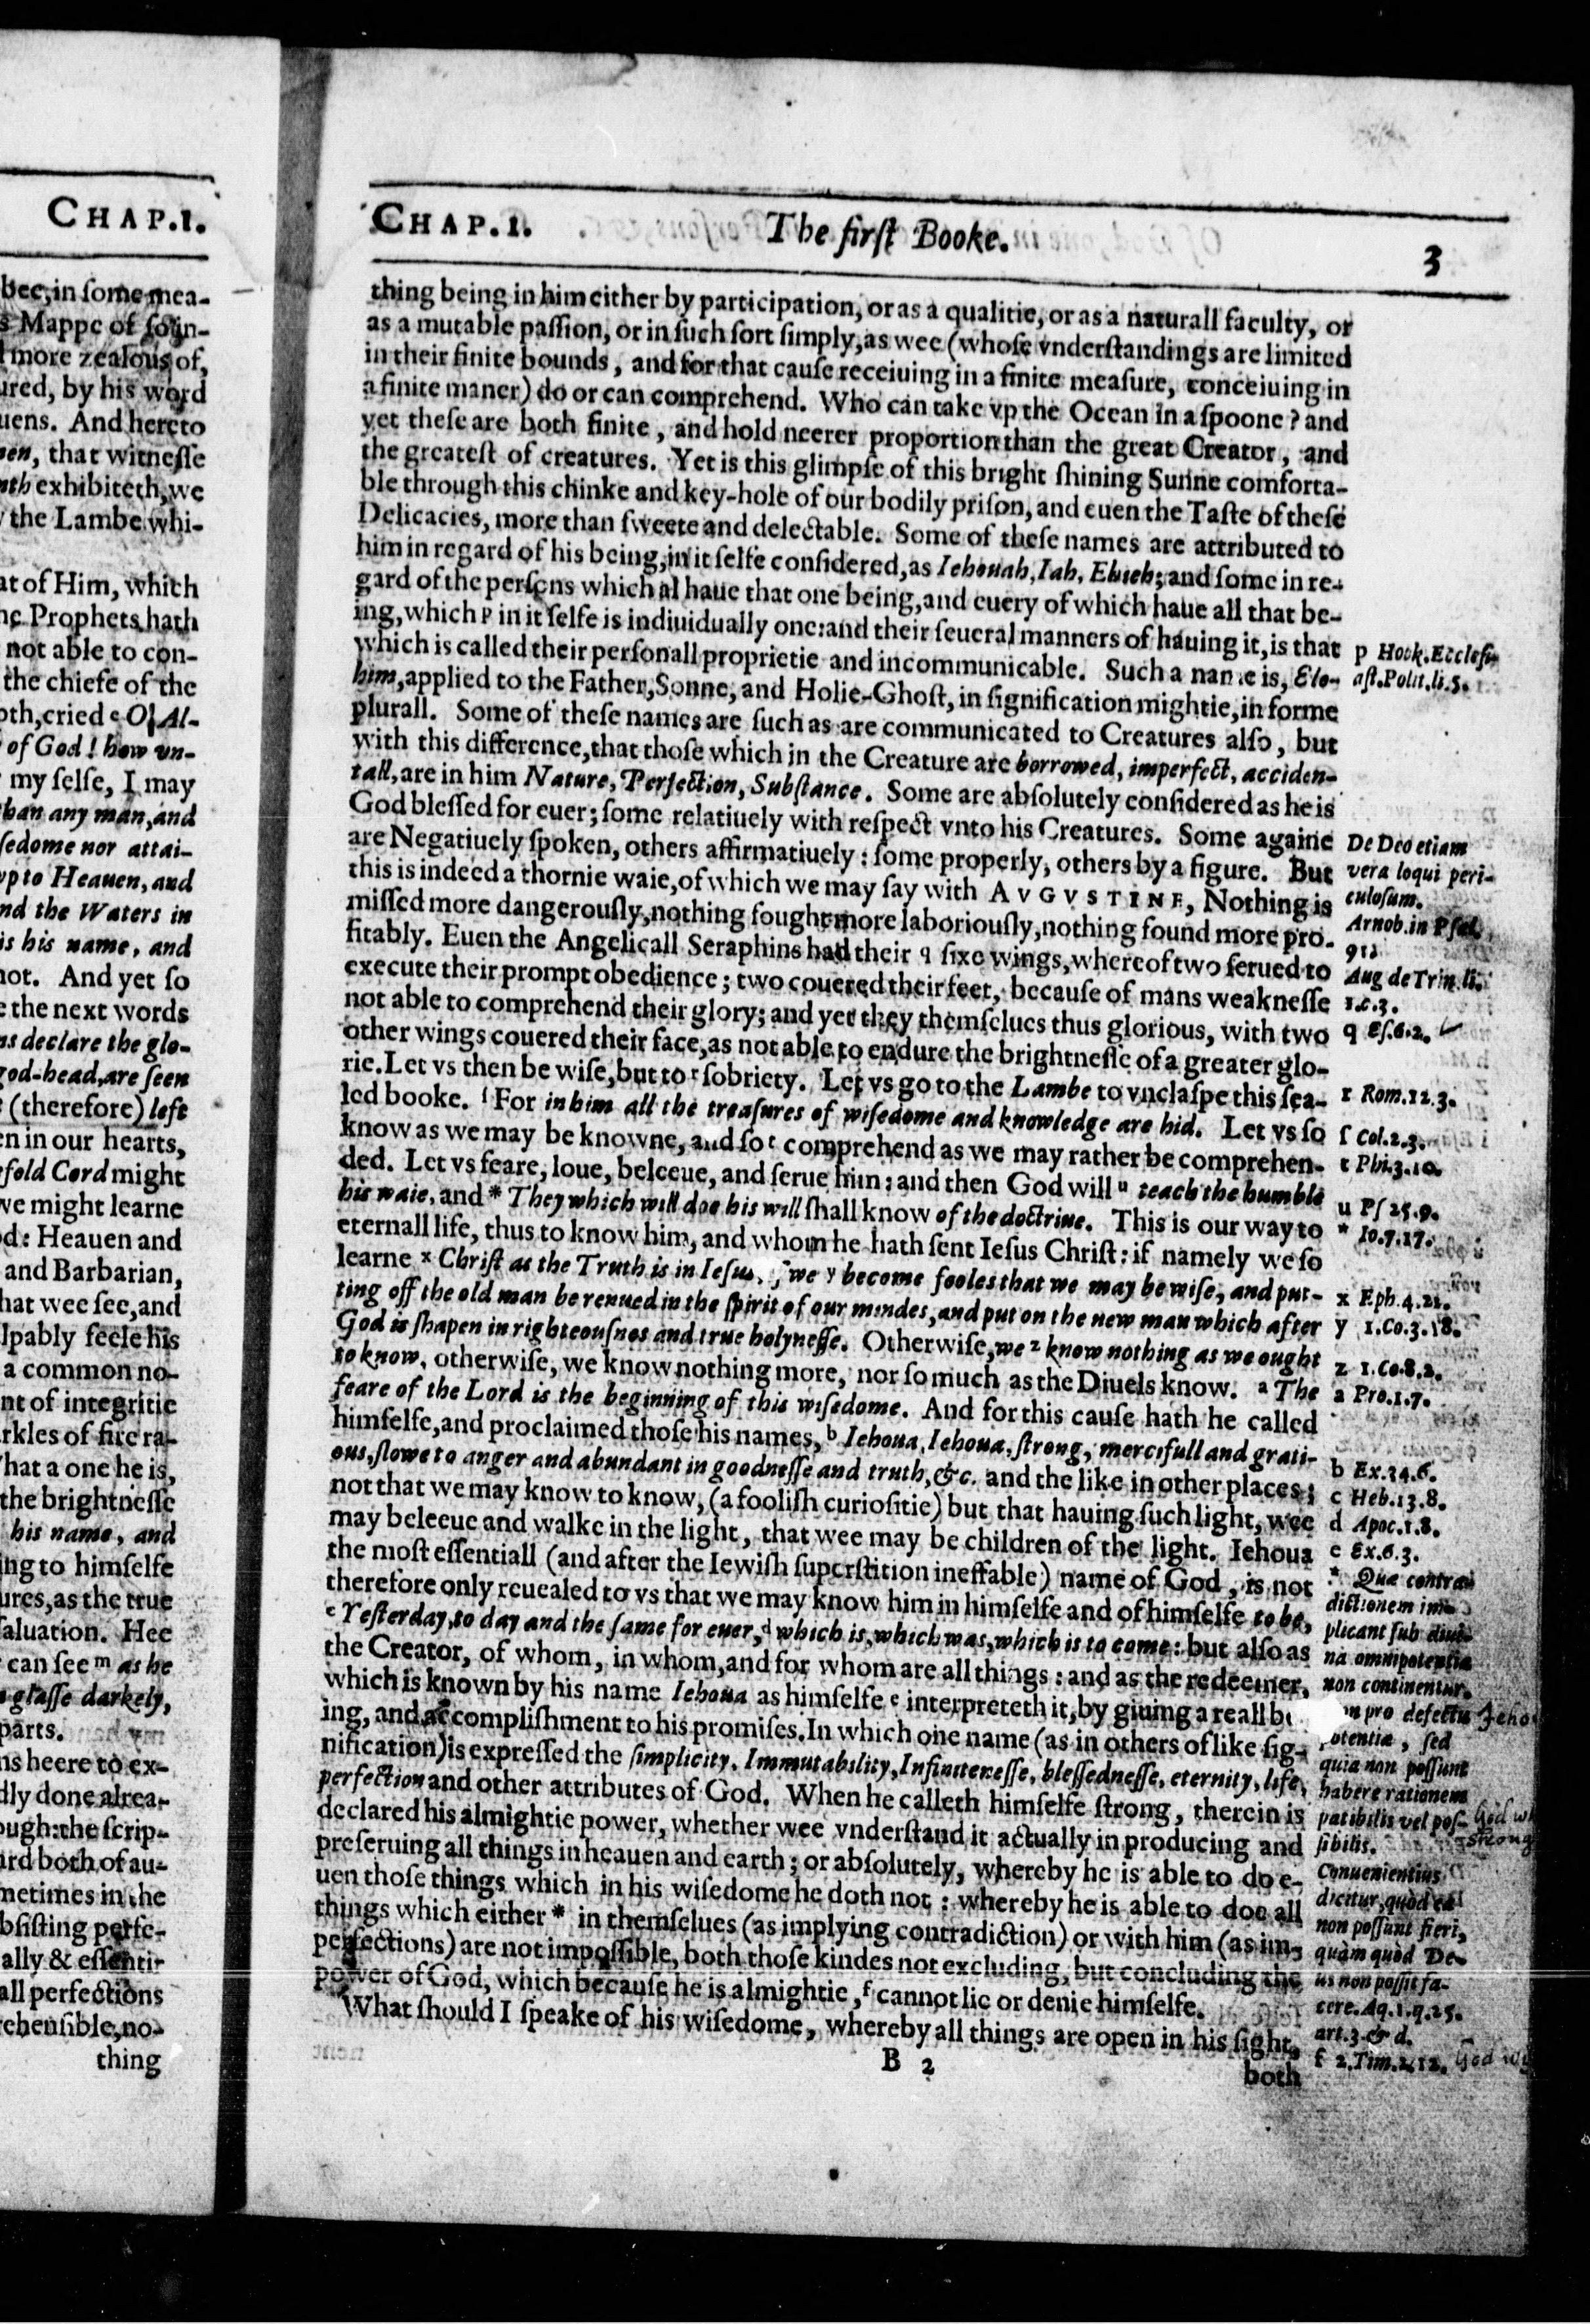 CHAP.1.
bee, in some mea-
s Mappe of so in-
more zealous of,
ured, by his word
uens. And hereto
men, that witnesse
nth exhibiteth, we
the Lambe whi-
at of Him, which
he Prophets hath
not able to con-
the chiefe of the
oth, cried e O Al-
of God! how vn-
my selfe, I may
than any man, and
sedome nor attai-
vp to Heauen, and
nd the Waters in
is his name, and
not. And yet so
e the next words
ns declare the glo-
god-head, are seen
(therefore) left
en in our hearts,
efold Cord might
we might learne
od: Heauen and
and Barbarian,
hat wee see, and
lpably feele his
a common no-
nt of integritie
rkles of fire ra-
hat a one he is,
the brightnesse
his name, and
ing to himselfe
ures, as the true
aluation. Hee
can see m as he
glasse darkely,
parts.
ns heere to ex-
dly done alrea-
ough: the scrip-
rd both of au-
metimes in the
bsisting perfe-
ally & essenti-
all perfections
ehensible, no-
thing
CHAP.1. The first Booke. 3
thing being in him either by participation, or as a qualitie, or as a naturall faculty, or
as a mutable passion, or in such sort simply, as wee (whose vnderstandings are limited
in their finite bounds, and for that cause receiuing in a finite measure, conceiuing in
a finite maner) do or can comprehend. Who can take vp the Ocean in a spoone? and
yet these are both finite, and hold neerer proportion than the great Creator, and
the greatest of creatures. Yet is this glimpse of this bright shining Sunne comforta-
ble through this chinke and key-hole of our bodily prison, and euen the Taste of these
Delicacies, more than sweete and delectable. Some of these names are attributed to
him in regard of his being, in it selfe considered, as Iehouah, Iah, Ehieh; and some in re-
gard of the persons which al haue that one being, and euery of which haue all that be-
ing, which p in it selfe is indiuidually one: and their seuerall manners of hauing it, is that
which is called their personall proprietie and incommunicable. Such a name is, Elo-
him, applied to the Father, Sonne, and Holie-Ghost, in signification mightie, in forme
plurall. Some of these names are such as are communicated to Creatures also, but
with this difference, that those which in the Creature are borrowed, imperfect, acciden-
tall, are in him Nature, Perfection, Substance. Some are absolutely considered as he is
God blessed for euer; some relatiuely with respect vnto his Creatures. Some againe
are Negatiuely spoken, others affirmatiuely: some properly, others by a figure. But
this is indeed a thornie waie, of which we may say with AVGVSTINE, Nothing is
missed more dangerously, nothing sought more laboriously, nothing found more pro-
fitably. Euen the Angelicall Seraphins had their q sixe wings, whereof two serued to
execute their prompt obedience; two couered their feet, because of mans weaknesse
not able to comprehend their glory; and yet they themselues thus glorious, with two
other wings couered their face, as not able to endure the brightnesse of a greater glo-
rie. Let vs then be wise, but to r sobriety. Let vs go to the Lambe to vnclaspe this sea-
led booke. ſ For in him all the treasures of wisedome and knowledge are hid. Let vs so
know as we may be knowne, and so t comprehend as we may rather be comprehen-
ded. Let vs feare, loue, beleeue, and serue him: and then God will u teach the humble
his waie, and * They which will doe his will shall know of the doctrine. This is our way to
eternall life, thus to know him, and whom he hath sent Iesus Christ: if namely we so
learne x Christ as the Truth is in Iesus, if we y become fooles that we may be wise, and put-
ting off the old man be renued in the spirit of our mindes, and put on the new man which after
God is shapen in righteousnes and true holynesse. Otherwise, we z know nothing as we ought
to know, otherwise, we know nothing more, nor so much as the Diuels know. a The
feare of the Lord is the beginning of this wisedome. And for this cause hath he called
himselfe, and proclaimed those his names, b Iehoua, Iehoua, strong, mercifull and grati-
ous, slowe to anger and abundant in goodnesse and truth, &c. and the like in other places;
not that we may know to know, (a foolish curiositie) but that hauing such light, wee
may beleeue and walke in the light, that wee may be children of the light. Iehoua
the most essentiall (and after the Iewish superstition ineffable) name of God, is not
therefore only reuealed to vs that we may know him in himselfe and of himselfe to be,
c Yesterday, to day and the same for euer, d which is, which was, which is to come: but also as
the Creator, of whom, in whom, and for whom are all things: and as the redeemer,
which is known by his name Iehoua as himselfe e interpreteth it, by giuing a reall be
ing, and accomplishment to his promises. In which one name (as in others of like sig-
nification) is expressed the simplicity, Immutability, Infinitenesse, blessednesse, eternity, life,
perfection and other attributes of God. When he calleth himselfe strong, therein is
declared his almightie power, whether wee vnderstand it actually in producing and
preseruing all things in heauen and earth; or absolutely, whereby he is able to do e-
uen those things which in his wisedome he doth not: whereby he is able to doe all
things which either * in themselues (as implying contradiction) or with him (as im-
perfections) are not impossible, both those kindes not excluding, but concluding the
power of God, which because he is almightie, f cannot lie or denie himselfe.
What should I speake of his wisedome, whereby all things are open in his sight,
B 2
both
p Hook. Ecclesi-
ast. Polit. li. 5.
De Deo etiam
vera loqui peri-
culosum.
Arnob. in Psal.
91.
Aug de Trin. li.
1. c. 3.
q Es. 6. 2.
r Rom. 12. 3.
ſ Col. 2. 3.
t Phi. 3. 10.
u Ps 25. 9.
* Io. 7. 17.
x Eph. 4. 21.
y 1. Co. 3. 18.
z 1. Co 8. 2.
a Pro. 1. 7.
b Ex. 34. 6.
c Heb. 13. 8.
d Apoc. 1. 8.
e Ex. 6. 3.
* Quæ contra-
dictionem im-
plicant sub diui-
na omnipotentia
non continentur,
non pro defectu
potentiæ, sed
quia non possunt
habere rationem
patibilis vel pos-
sibilis.
Conuenientius
dicitur, quòd ea
non possunt fieri,
quàm quòd De-
us non possit fa-
cere. Aq. 1. q. 25.
art. 3. & d.
f 2. Tim. 2, 12.
Jeho
God wh
strong
God wi